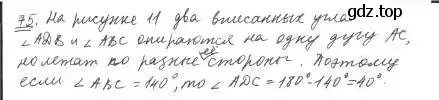 gdz.top
75. На рисунке 11 два вписанных угла
∠ADB и ∠ABC опираются на одну дугу AC,
но лежат по разные её стороны. Поэтому
если ∠ABC = 140°, то ∠ADC = 180° - 140° = 40°.